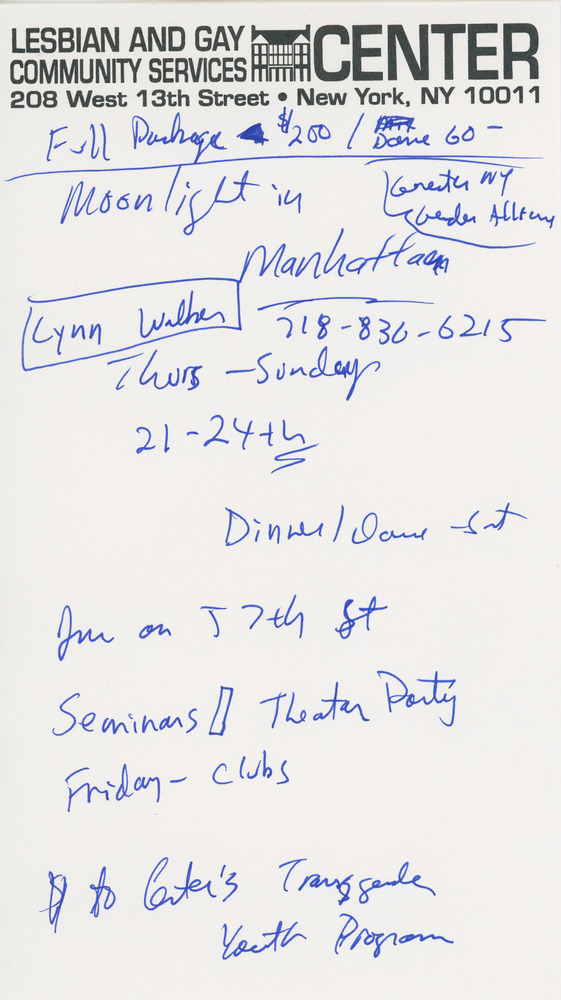 LESBIAN AND GAY
COMMUNITY SERVICES
CENTER
208 West 13th Street • New York, NY 10011
Full Package $200 / Dance 60 -
Moonlight in
Greater NY
Gender Alliance
Manhattan
Lynn Walker 718-836-6215
Thurs - Sunday
21-24th
Dinner/Dance Sat
Inn on 57th St
Seminars Theater Party
Friday - Clubs
$ to Center's Transgender
Youth Program